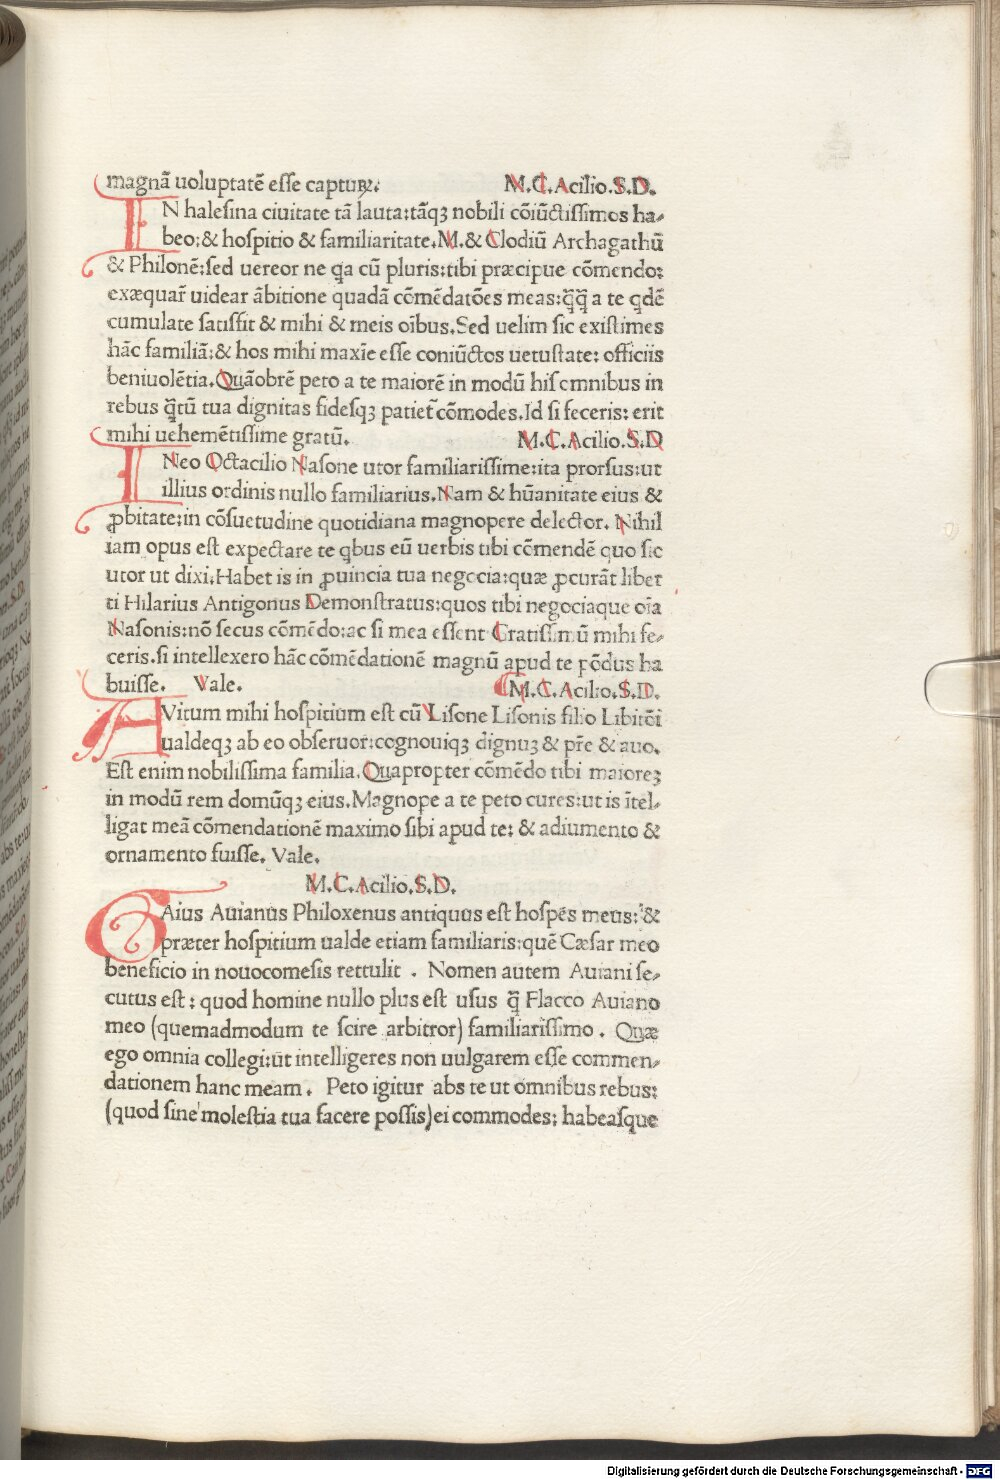 magnã uoluptatẽ eſſe captuꝝ. M.C.Acilio.S.D.
IN haleſina ciuitate tã lauta:tãqꝫ nobili cõiũctiſſimos ha⸗
beo:& hoſpitio & familiaritate.M.& Clodiũ Archagathũ
& Philonẽ:ſed uereor ne qa cũ pluris:tibi præcipue cõmendo:
exæquar̃ uidear ãbitione quadã cõmẽdatões meas:q̃q̃ a te qdẽ
cumulate ſatiſfit & mihi & meis oĩbus.Sed uelim ſic exiſtimes
hãc familiã:& hos mihi maxĩe eſſe coniũctos uetuſtate: officiis
beniuolẽtia.Quãobrẽ peto a te maiorẽ in modũ hiſ omnibus in
rebus q̃tũ tua dignitas fideſqꝫ patiet̃ cõmodes.Id ſi feceris: erit
mihi uehemẽtiſſime gratũ. M.C.Acilio.S.D
INeo Octacilio Naſone utor familiariſſime:ita prorſus:ut
illius ordinis nullo familiarius.Nam & hũanitate eius &
ꝓbitate:in cõſuetudine quotidiana magnopere delector. Nihil
iam opus eſt expectare te qbus eũ uerbis tibi cõmendẽ quo ſic
utor ut dixi.Habet is in ꝓuincia tua negocia:quæ ꝓcurãt liber
ti Hilarius Antigonus Demonſtratus:quos tibi negociaque oĩa
Naſonis:nõ ſecus cõmẽdo:ac ſi mea eſſent Gratiſſimũ mihi fe⸗
ceris.ſi intellexero hãc cõmẽdationẽ magnũ apud te põdus ha
buiſſe. Vale. M.C.Acilio.S.D.
AVitum mihi hoſpitium eſt cũ Liſone Liſonis filio Libitõi
ualdeqꝫ ab eo obſeruor:cognouiqꝫ dignuꝫ & pr̃e & auo.
Eſt enim nobiliſſima familia.Quapropter cõmẽdo tibi maioreꝫ
in modũ rem domũqꝫ eius.Magnope a te peto cures:ut is ĩtel⸗
ligat meã cõmendationẽ maximo ſibi apud te: & adiumento &
ornamento fuiſſe. Vale.
M.C.Acilio.S.D.
GAius Auianus Philoxenus antiquus eſt hoſpes meus: &
præter hoſpitium ualde etiam familiaris:quẽ Cæſar meo
beneficio in nouocomeſis rettulit . Nomen autem Auiani ſe⸗
cutus eſt: quod homine nullo plus eſt uſus q̃ Flacco Auiano
meo (quemadmodum te ſcire arbitror) familiariſſimo . Quæ
ego omnia collegi:ut intelligeres non uulgarem eſſe commen⸗
dationem hanc meam . Peto igitur abs te ut omnibus rebus:
(quod ſine moleſtia tua facere poſſis) ei commodes: habeaſque
Digitalisierung gefördert durch die Deutsche Forschungsgemeinschaft - DFG